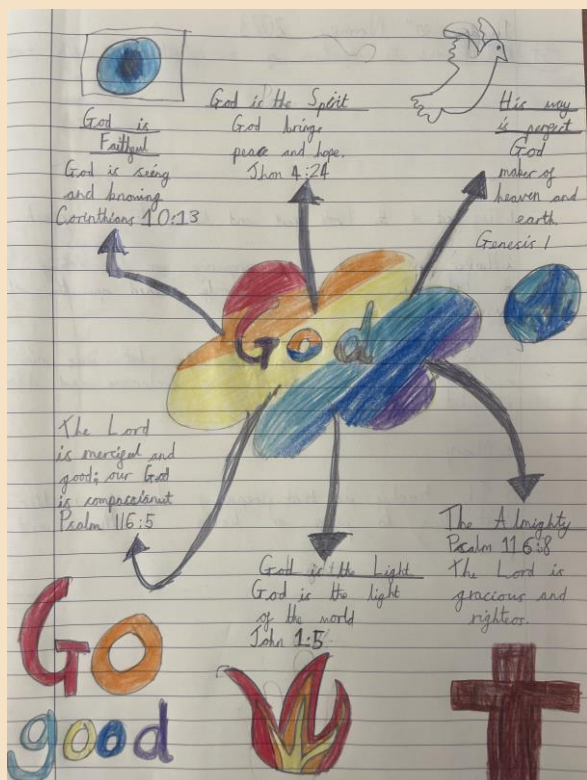 God is
Faithful
God is sieng
and knowing
Corinthians 10:13
God is the Spirit
God brings
peace and hope.
Jhon 4:24
His way
is perfect
God
maker of
heaven and
earth.
Genesis 1
God
The Lord
is merciful and
good; our God
is compassionet
Psalm 116:5
God is the Light
God is the light
of the world
John 1:5
The Almighty
Psalm 116:8
The Lord is
gracious and
righteos.
Go
good